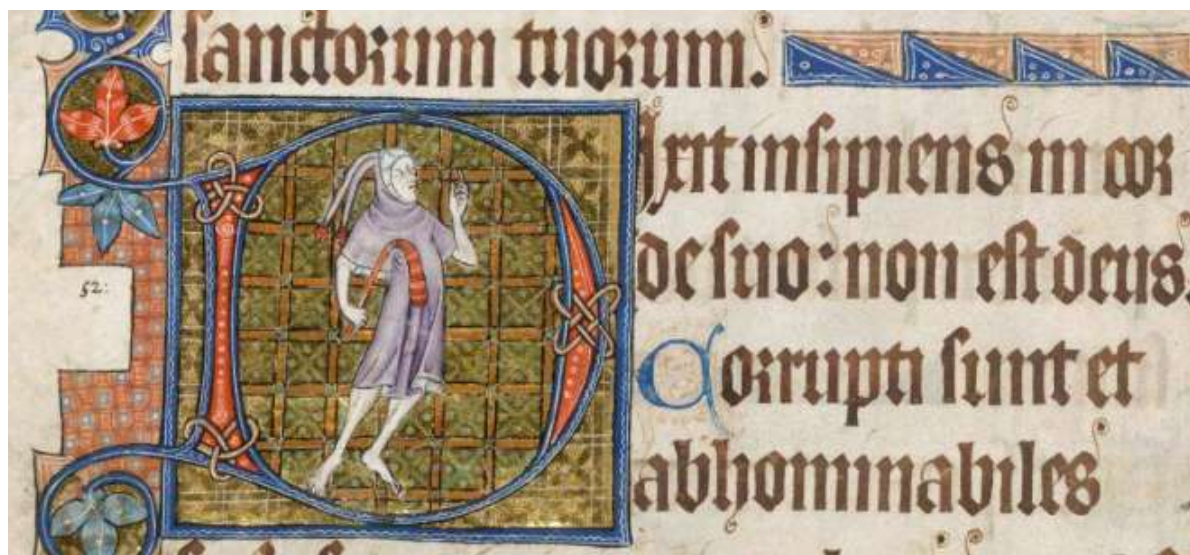 sanctorum tuorum.
Dixit insipiens in cor
de suo: non est deus.
Corrupti sunt et
abhominabiles
52: